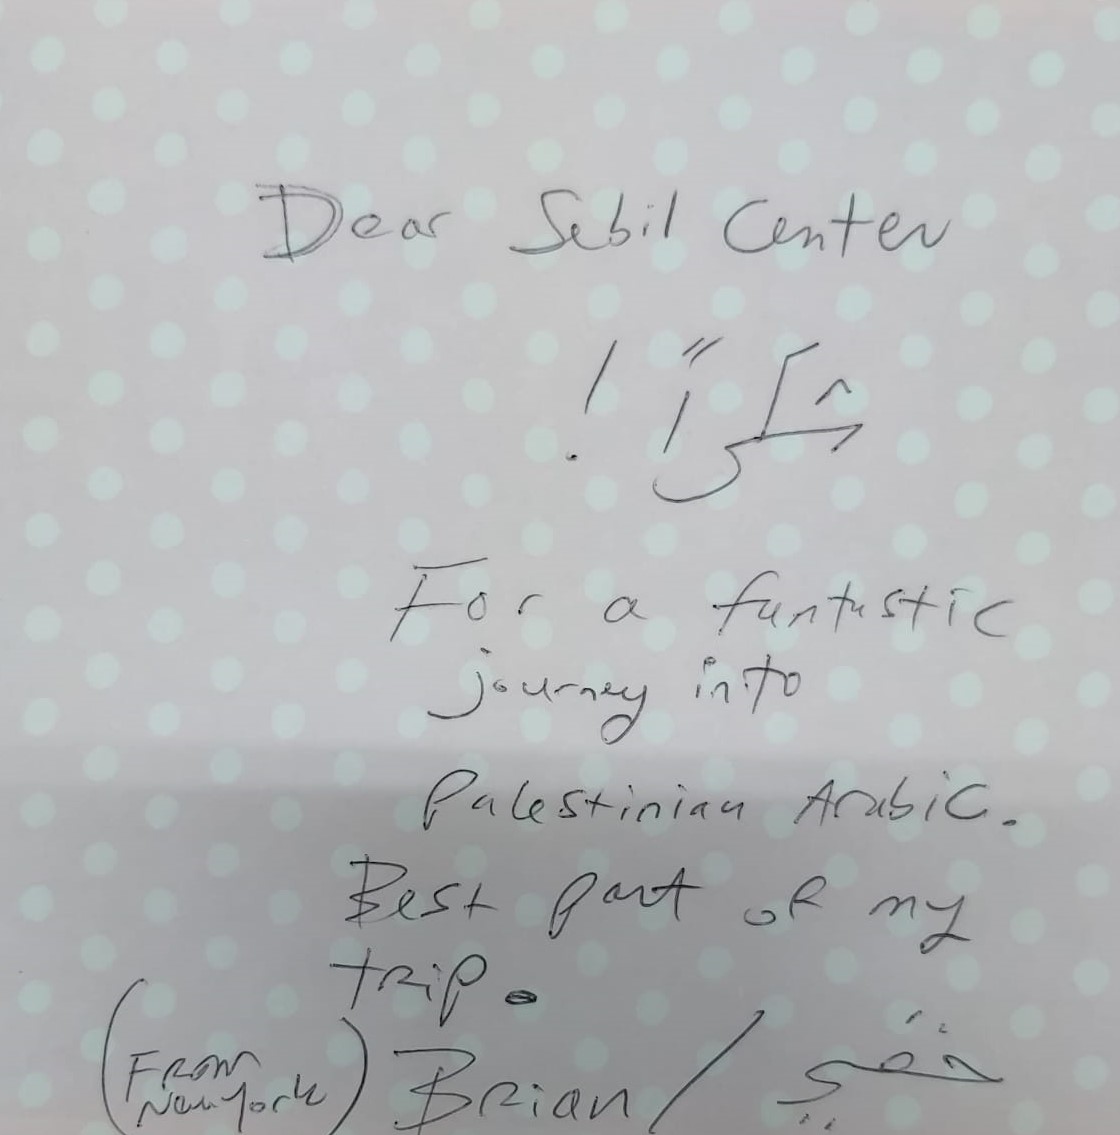 Dear Sebil Center
شكراً !
For a fantastic
journey into
Palestinian Arabic.
Best part of my
trip.
(From
New York) Brian /